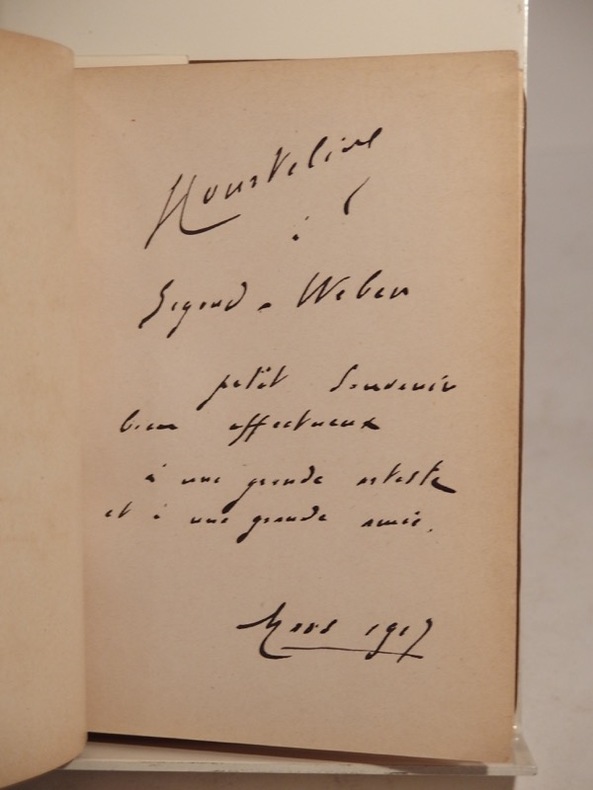 Courteline
à
Segond-Weber
petit souvenir
bien affectueux
à une grande artiste
et à une grande amie.
Mars 1917